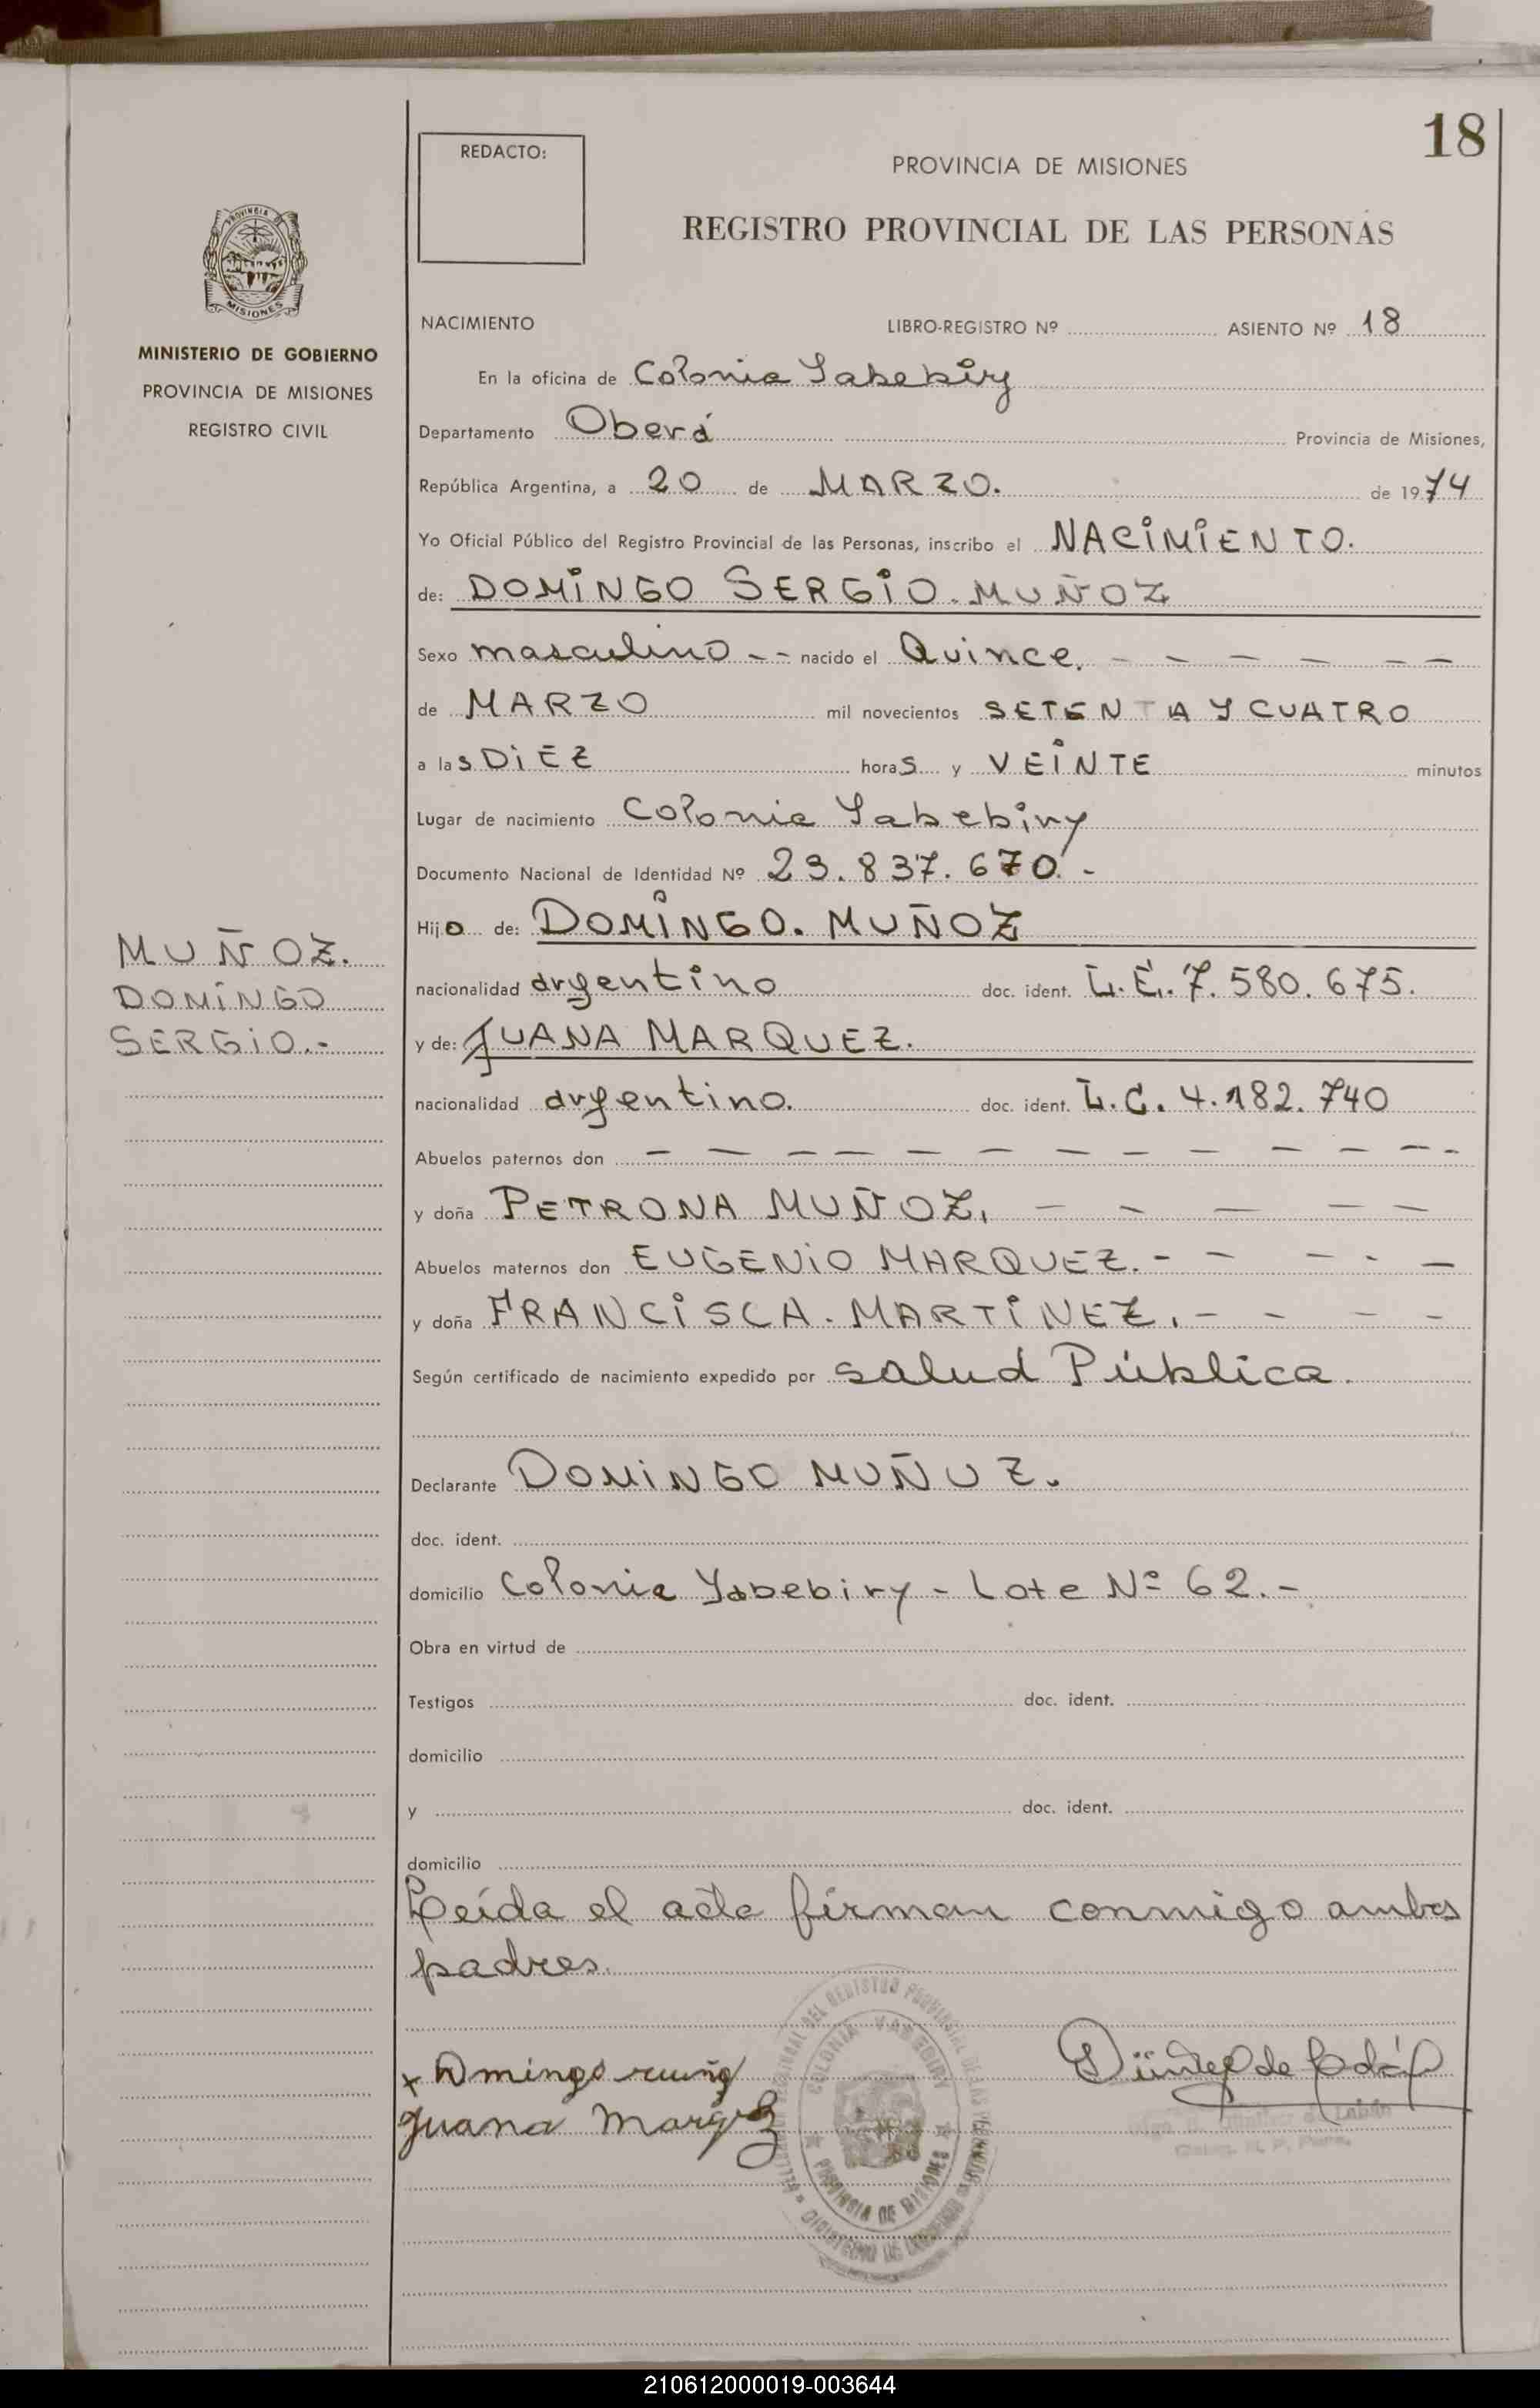 18
REDACTO:
PROVINCIA DE MISIONES
REGISTRO PROVINCIAL DE LAS PERSONAS
MISIONES
MINISTERIO DE GOBIERNO
PROVINCIA DE MISIONES
REGISTRO CIVIL
NACIMIENTO LIBRO-REGISTRO Nº ASIENTO Nº 18
En la oficina de Colonia Yabebiry
Departamento Oberá Provincia de Misiones,
República Argentina, a 20 de MARZO. de 1974
Yo Oficial Público del Registro Provincial de las Personas, inscribo el NACIMIENTO.
de: DOMINGO SERGIO. MUÑOZ
Sexo masculino -- nacido el Quince. - - - - - -
de MARZO mil novecientos SETENTA Y CUATRO
a las DIEZ horas y VEINTE minutos
Lugar de nacimiento Colonia Yabebiry
Documento Nacional de Identidad Nº 23.837.670.-
Hijo de: DOMINGO. MUÑOZ
MUÑOZ.
DOMINGO
SERGIO.-
nacionalidad argentino doc. ident. L.E. 7.580.675.
y de: JUANA MARQUEZ.
nacionalidad argentino. doc. ident. L.C. 4.182.740
Abuelos paternos don - - - - - - - - - - - - -
y doña PETRONA MUÑOZ. - - - - -
Abuelos maternos don EUGENIO MARQUEZ. - - - - -
y doña FRANCISCA. MARTINEZ. - - - -
Según certificado de nacimiento expedido por salud Pública.
Declarante DOMINGO MUÑUZ.
doc. ident.
domicilio Colonia Yabebiry - Lote Nº 62.-
Obra en virtud de
Testigos doc. ident.
domicilio
y doc. ident.
domicilio
Leída el acta firman conmigo ambos
padres.
COLONIA YABEBIRY
PROVINCIA DE MISIONES
Juana
210612000019-003644